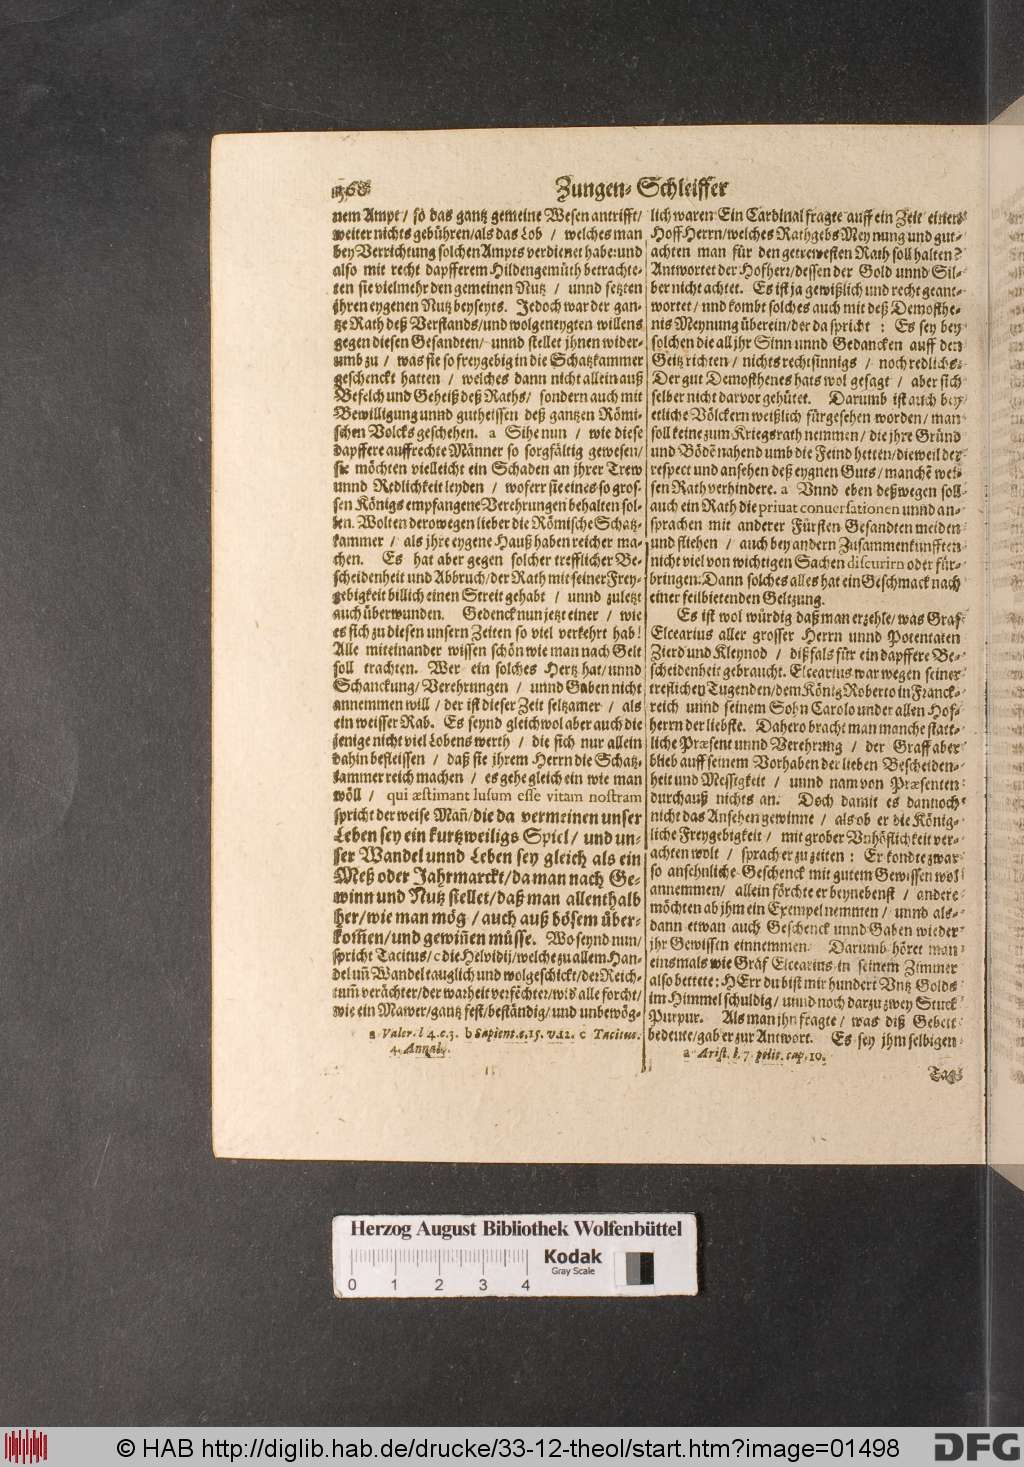 Zungen-Schleiffer
nem Ampt / so das gantz gemeine Wesen antrifft /
weiter nichts gebühren / als das Lob / welches man
bey Verrichtung solchen Ampts verdienet habe: und
also mit recht dapfferem Hildengemüth betrachte-
ten sie vielmehr den gemeinen Nutz / unnd setzten
jhren eygenen Nutz beyseyts. Jedoch war der gan-
tze Rath deß Verstands / und wolgeneygten willens
gegen diesen Gesandten / unnd stellet jhnen wider-
umb zu / was sie so freygebig in die Schatzkammer
geschenckt hatten / welches dann nicht allein auß
Befelch und Geheiß deß Raths / sondern auch mit
Bewilligung unnd gutheissen deß gantzen Römi-
schen Volcks geschehen. a Sihe nun / wie diese
dapffere auffrechte Männer so sorgfältig gewesen /
sie möchten vielleicht ein Schaden an jhrer Trew
unnd Redlichkeit leyden / wofern sie eines so gros-
sen Königs empfangene Verehrungen behalten sol-
ten. Wolten derowegen lieber die Römische Schatz-
kammer / als jhre eygene Hauß haben reicher ma-
chen. Es hat aber gegen solcher trefflicher Be-
scheidenheit und Abbruch / der Rath mit seiner Frey-
gebigkeit billich einen Streit gehabt / unnd zuletzt
auch überwunden. Gedenck nun jetzt einer / wie
es sich zu diesen unsern Zeiten so viel verkehrt hab!
Alle miteinander wissen schön wie man nach Gelt
soll trachten. Wer ein solches Hertz hat / unnd
Schanckung / Verehrungen / unnd Gaben nicht
annemmen will / der ist dieser Zeit seltzamer / als
ein weisser Rab. Es seynd gleichwol aber auch die
jenige nicht viel Lobens werth / die sich nur allein
dahin befleissen / daß sie jhrem Herrn die Schatz-
kammer reich machen / es gehe gleich ein wie man
wöll / qui æstimant lusum esse vitam nostram
spricht der weise Mañ / die da vermeinen unser
Leben sey ein kurtzweiligs Spiel / und un-
ser Wandel unnd Leben sey gleich als ein
Meß oder Jahrmarckt / da man nach Ge-
winn und Nutz stellet / daß man allenthalb
her / wie man mög / auch auß bösem über-
kom̃en / und gewiñen müsse. Wo seynd nun /
spricht Tacitus / c die Helvidij / welche zu allem Han-
del uñ Wandel tauglich und wolgeschickt / der Reich-
tum̃ verächter / der warheit verfechter / wis alle forcht /
wie ein Mawer / gantz fest / beständig / und unbewög-
a Valer. l 4. c. 3. b Sapient. c. 15. v. 12. c Tacitus.
4. Annal.
lich waren Ein Cardinal fragte auff ein Zeit einen
Hoff Herrn / welches Rathgebs Meynung und gut-
achten man für den getrewesten Rath soll halten?
Antwortet der Hofherr / dessen der Gold unnd Sil-
ber nicht achtet. Es ist ja gewißlich und recht geant-
wortet / unnd kombt solches auch mit deß Demosthe-
nis Meynung überein / der da spricht : Es sey bey
solchen die all jhr Sinn unnd Gedancken auff den
Geitz richten / nichts rechtsinnigs / noch redlichs.
Der gut Demosthenes hats wol gesagt / aber sich
selber nicht darvor gehütet. Darumb ist auch bey
etliche Völckern weißlich fürgesehen worden / man
soll keine zum Kriegsrath nemmen / die jhre Gründ
und Bödẽ nahend umb die Feind hetten / dieweil der
respect und ansehen deß eygnen Guts / manchẽ wei-
sen Rath verhindere. a Unnd eben deßwegen soll
auch ein Rath die privat conversationen unnd an-
sprachen mit anderer Fürsten Gesandten meiden
und fliehen / auch bey andern Zusammenkunfften
nicht viel von wichtigen Sachen discurirn oder für-
bringen: Dann solches alles hat ein Geschmack nach
einer feilbietenden Geltzung.
Es ist wol würdig daß man erzehle / was Graf
Elcearius aller grosser Herrn unnd Potentaten
Zierd und Kleynod / dißfals für ein dapffere Be-
scheidenheit gebraucht. Elcearius war wegen seiner
treflichen Tugenden / dem König Roberto in Franck-
reich unnd seinem Sohn Carolo under allen Hof-
herrn der liebste. Dahero bracht man manche statt-
liche Præsent unnd Verehrung / der Graff aber
blieb auff seinem Vorhaben der lieben Bescheiden-
heit und Messigkeit / unnd nam von Præsenten
durchauß nichts an. Doch damit es dannoch
nicht das Ansehen gewinne / als ob er die König-
liche Freygebigkeit / mit grober Unhöflichkeit ver-
achten wolt / sprach er zu zeiten : Er kondte zwar
so ansehnliche Geschenck mit gutem Gewissen wol
annemmen / allein förchte er beynebenst / andere
möchten ab jhm ein Exempel nemmen / unnd als-
dann etwan auch Geschenck unnd Gaben wieder
jhr Gewissen einnemmen. Darumb höret man
einsmals wie Graf Elcearius in seinem Zimmer
also bettete: HErr du bist mir hundert Untz Golds
im Himmel schuldig / unnd noch darzu zwey Stuck
Purpur. Als man jhn fragte / was diß Gebett
bedeute / gab er zur Antwort. Es sey jhm selbigen
a Arist. l. 7 polit. cap. 10.
Tag
Herzog August Bibliothek Wolfenbüttel
Kodak
Gray Scale
0 1 2 3 4
© HAB http://diglib.hab.de/drucke/33-12-theol/start.htm?image=01498
DFG